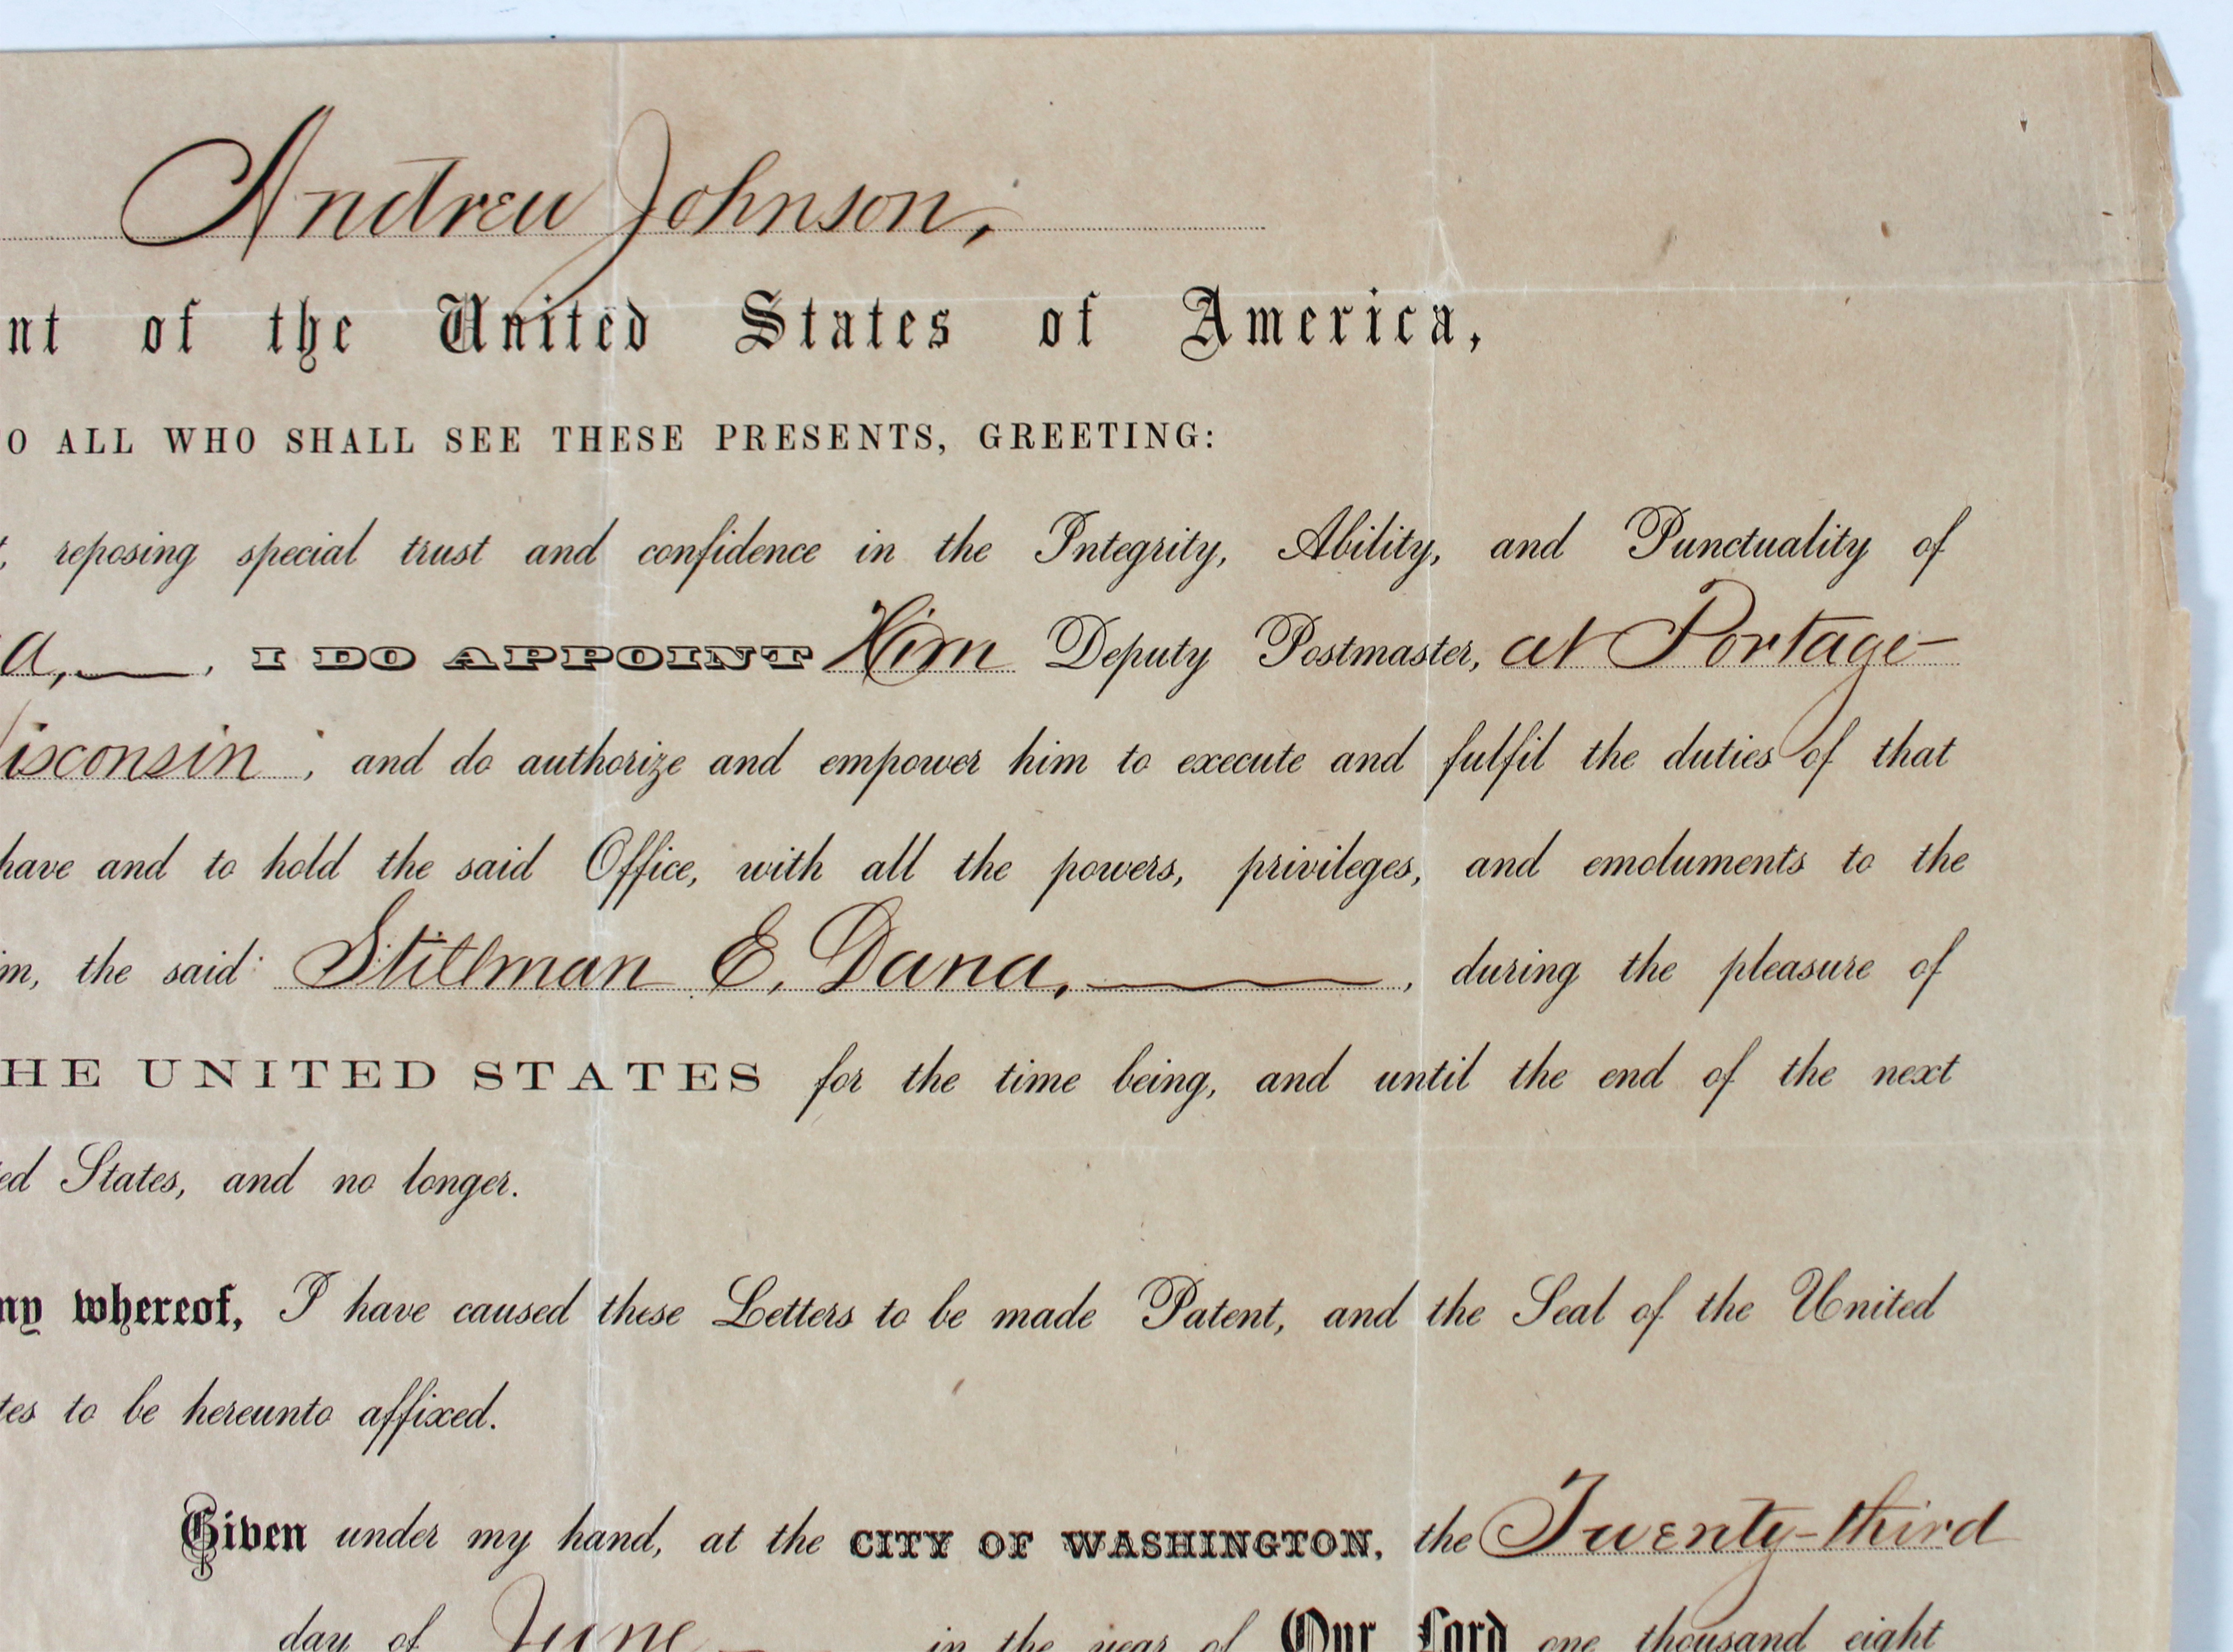 Andrew Johnson,
nt of the United States of America,
O ALL WHO SHALL SEE THESE PRESENTS, GREETING:
, reposing special trust and confidence in the Integrity, Ability, and Punctuality of
a, , I DO APPOINT Him Deputy Postmaster, at Portage
isconsin ; and do authorize and empower him to execute and fulfil the duties of that
have and to hold the said Office, with all the powers, privileges, and emoluments to the
m, the said Stillman E. Dana, , during the pleasure of
HE UNITED STATES for the time being, and until the end of the next
ed States, and no longer.
ny whereof, I have caused these Letters to be made Patent, and the Seal of the United
tes to be hereunto affixed.
Given under my hand, at the CITY OF WASHINGTON, the Twenty-third
day of June in the year of Our Lord one thousand eight